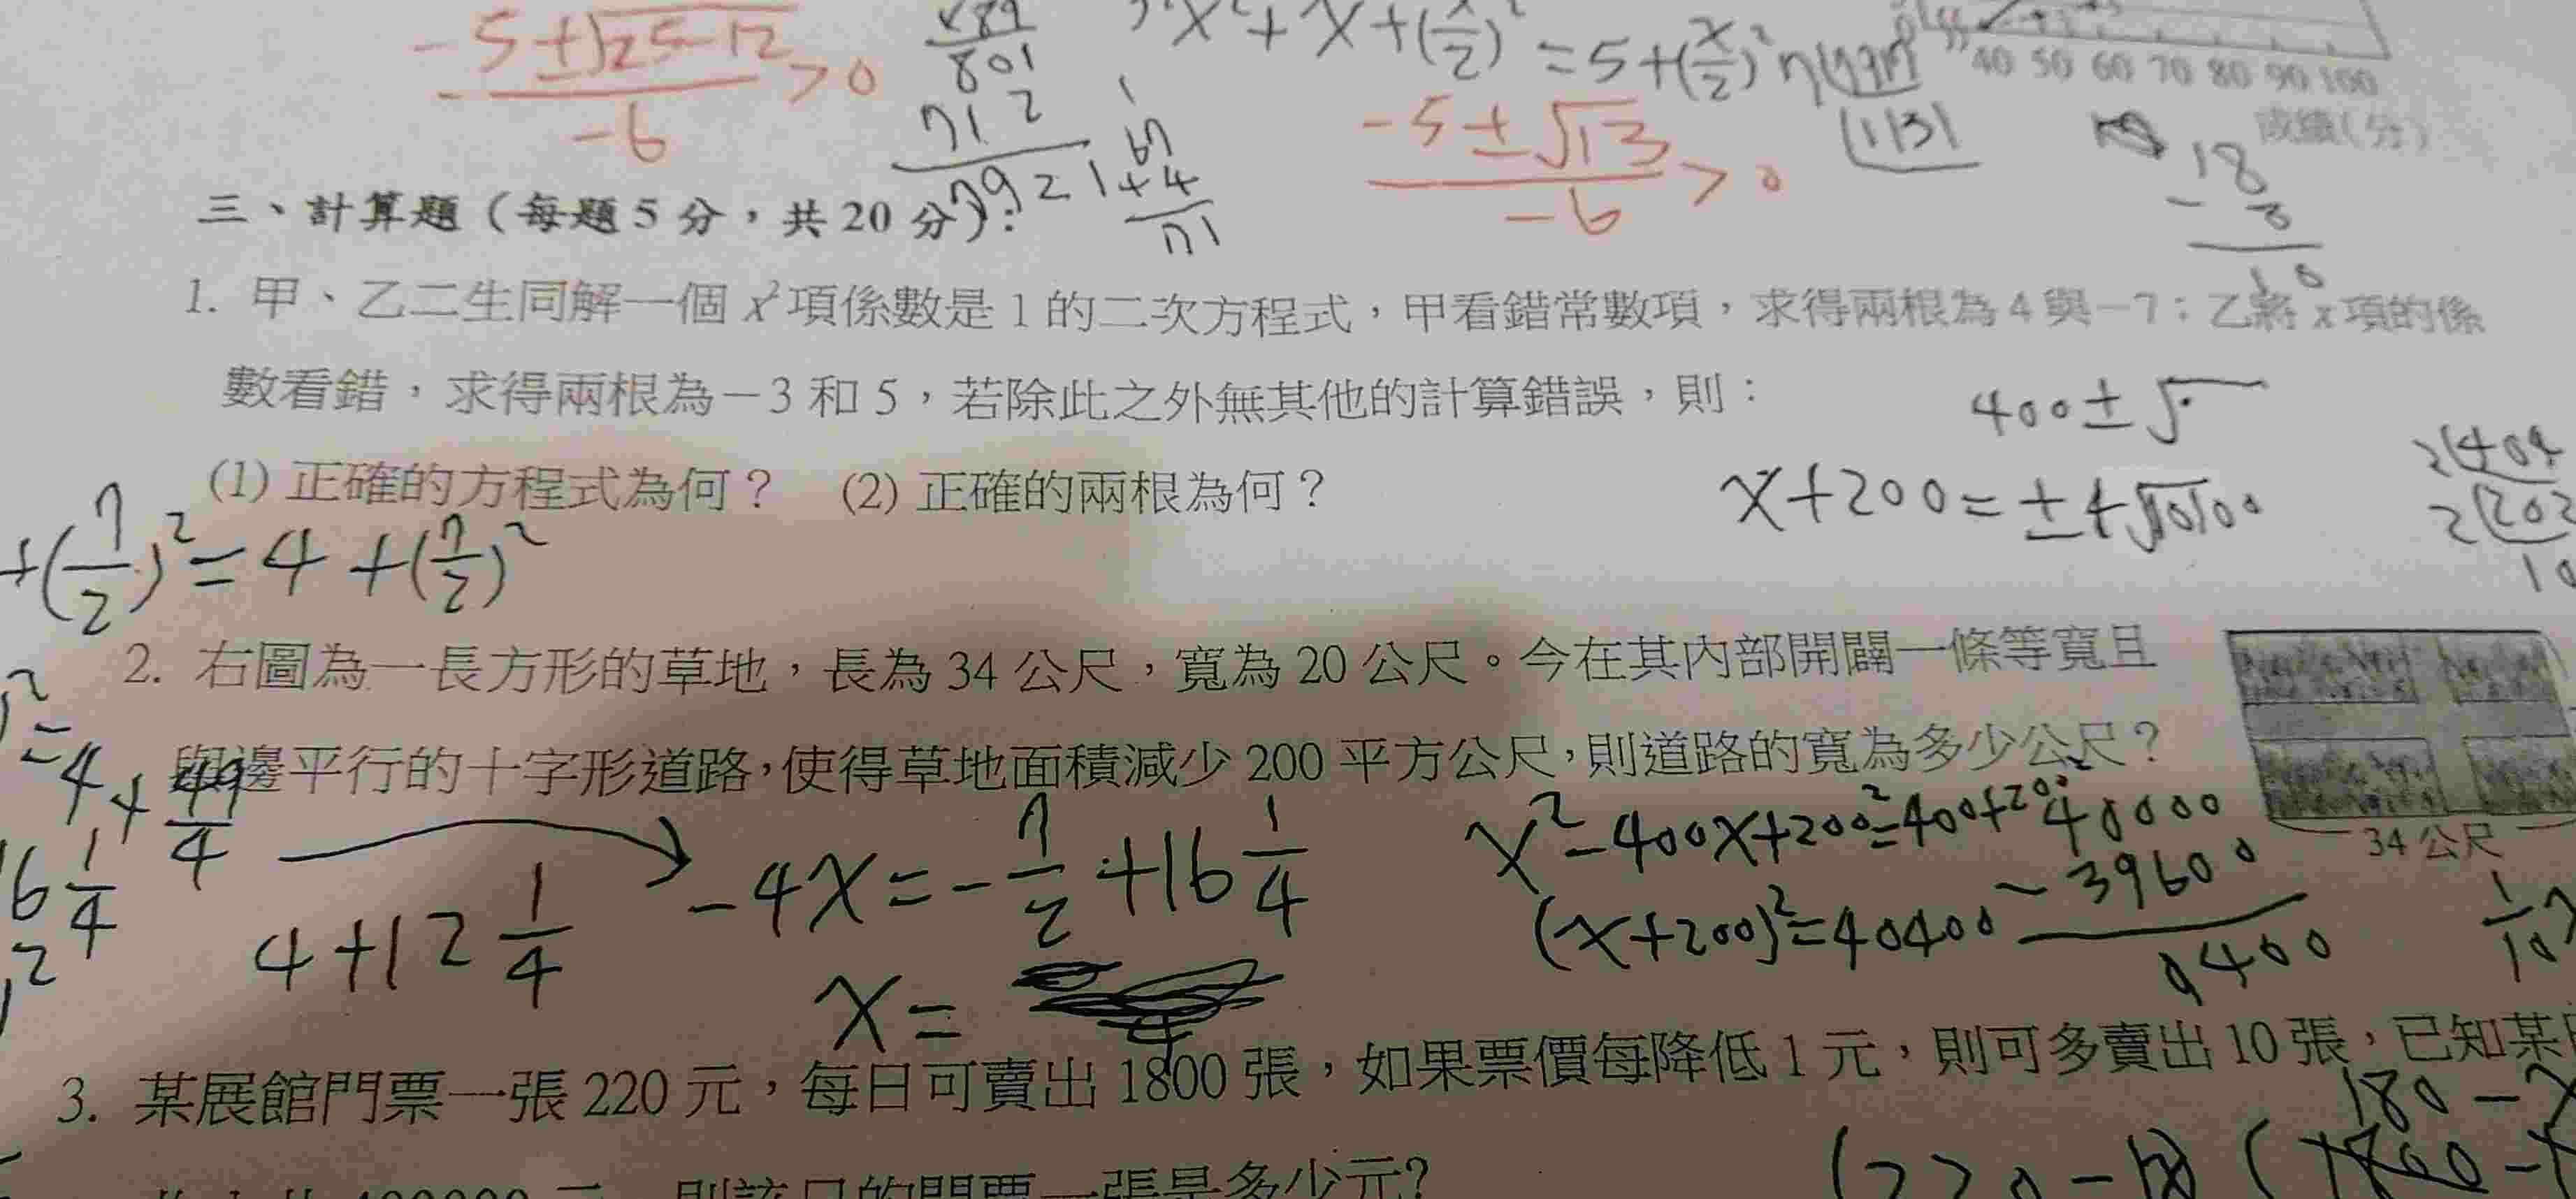 -5±√25-12
-6
>0
801
712
x²+x+(x/2)²=5+(x/2)²
40 50 60 70 80 90 100
成績(分)
-5±√13
-6
>0
1131
18
- 8
10
67
+4
71
三、計算題(每題5分,共20分):
1. 甲、乙二生同解一個 x² 項係數是 1 的二次方程式,甲看錯常數項,求得兩根為 4 與-7;乙將 x 項的係
數看錯,求得兩根為-3 和 5,若除此之外無其他的計算錯誤,則:
400±√
(1) 正確的方程式為何? (2) 正確的兩根為何?
x+200=±4√10100
2(404
2(202
10
+(7/2)²=4+(7/2)²
2. 右圖為一長方形的草地,長為 34 公尺,寬為 20 公尺。今在其內部開闢一條等寬且
與邊平行的十字形道路,使得草地面積減少 200 平方公尺,則道路的寬為多少公尺?
34 公尺
=4+49/4
16 1/4
4+12 1/4
-4x=-7/2+16 1/4
x=
x²-400x+200²=400+200²
(x+200)²=40400
40000
-39600
0400
1/10
3. 某展館門票一張 220 元,每日可賣出 1800 張,如果票價每降低 1 元,則可多賣出 10 張,已知某
180-x
則該日的門票一張是多少元?
(220-